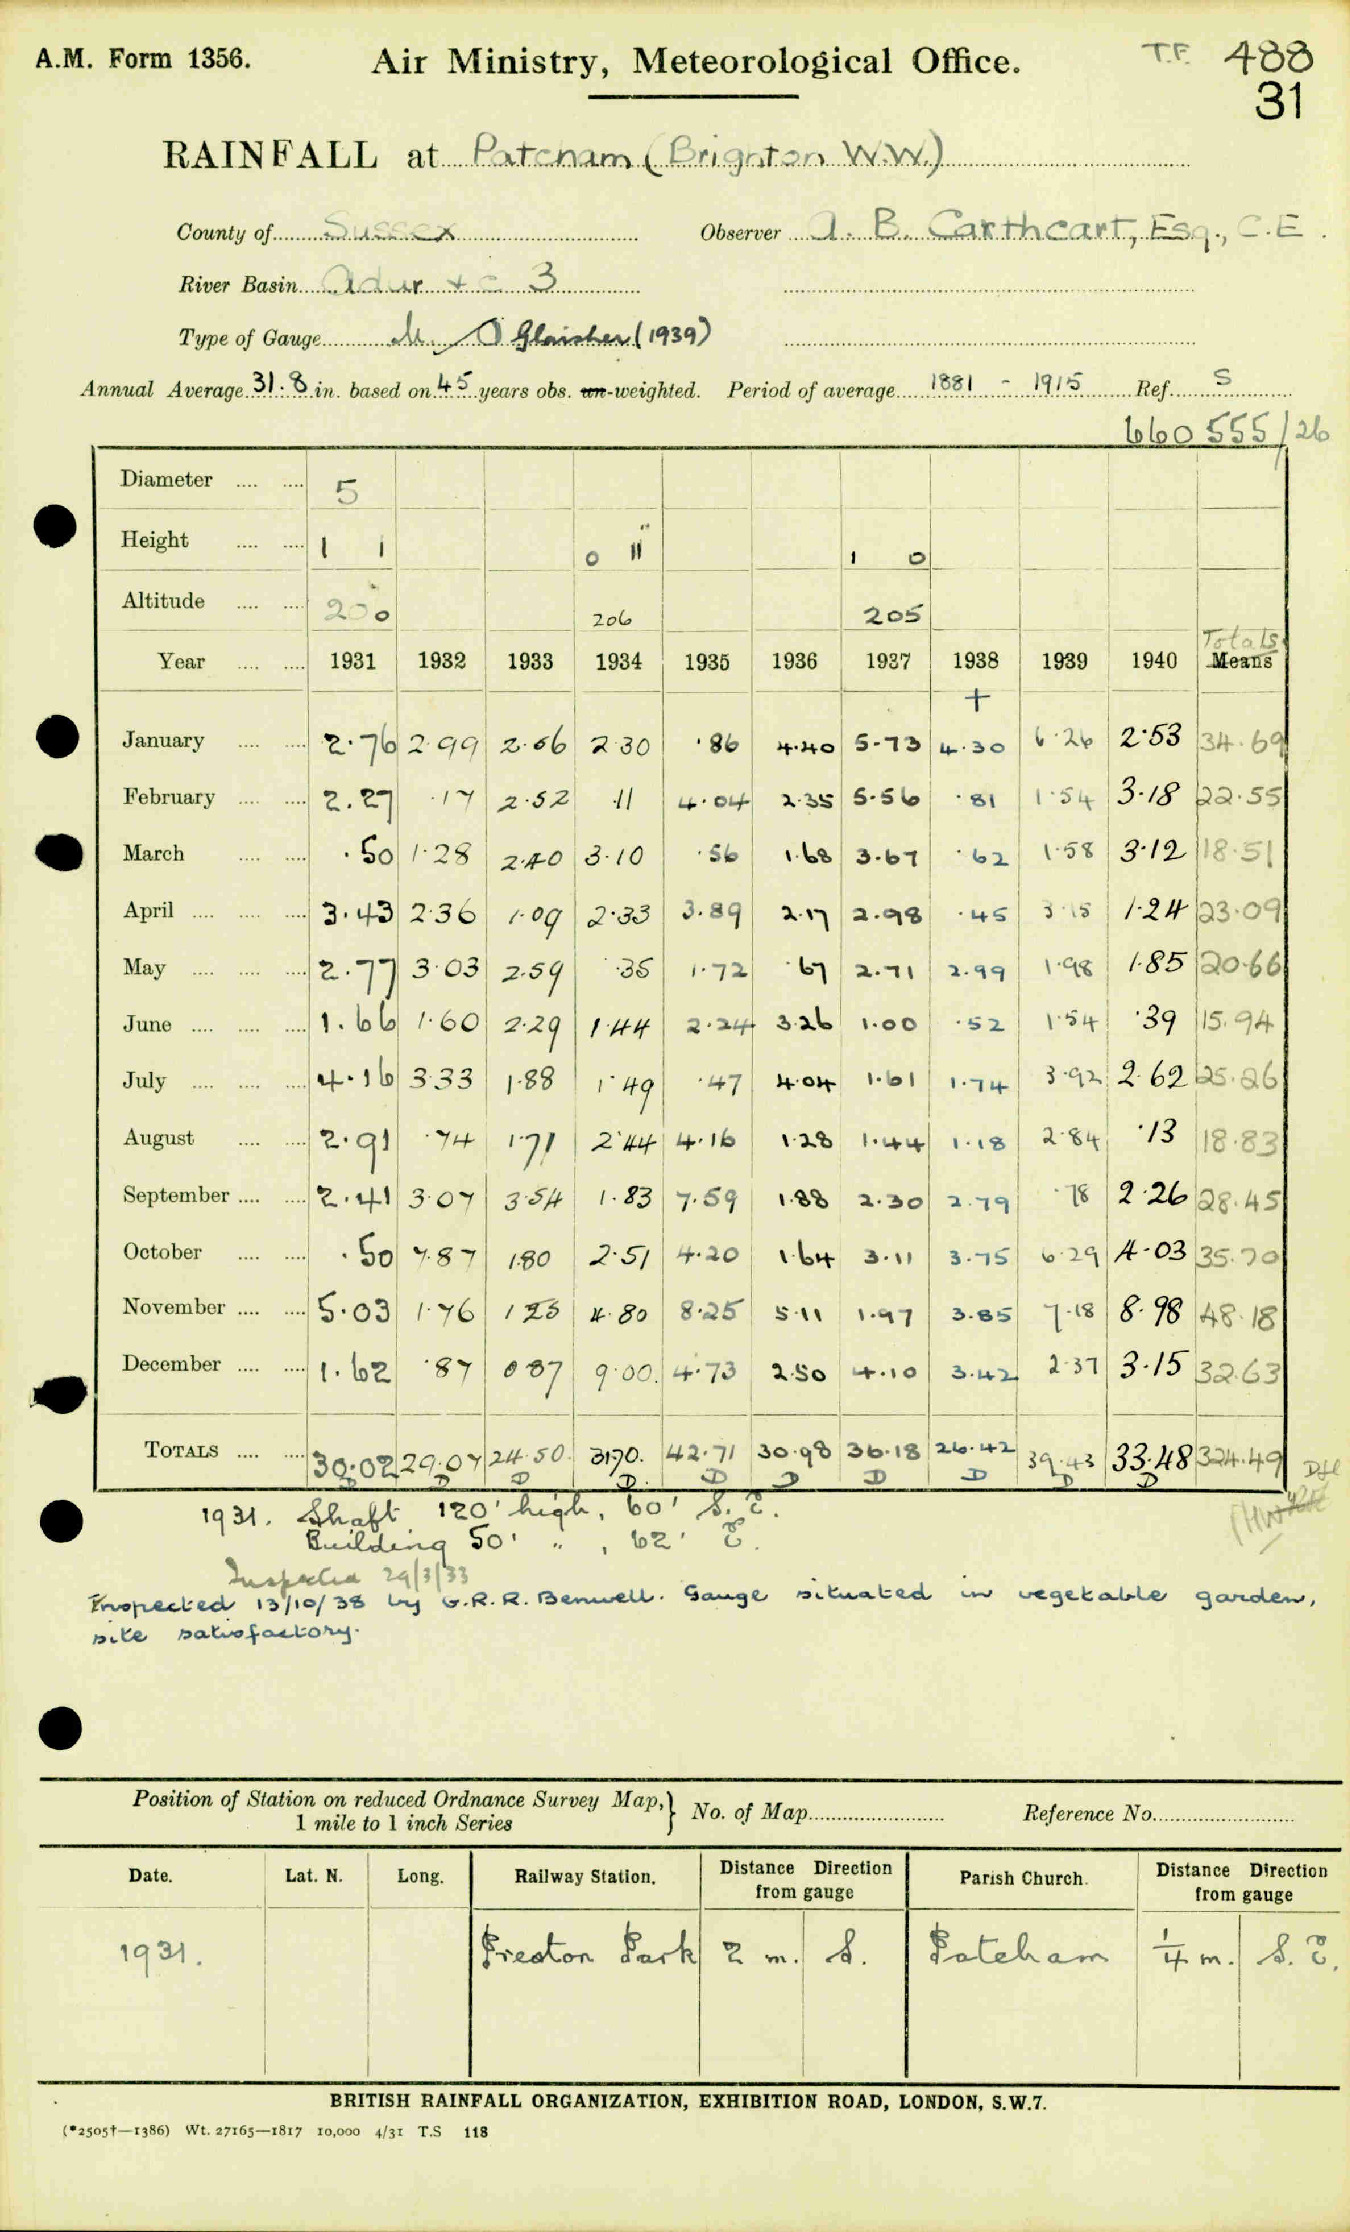 A.M. Form 1356. Air Ministry, Meteorological Office. T.F. 488
31
RAINFALL at Patcham (Brighton W.W.)
County of Sussex Observer A. B. Carthcart, Esq., C.E.
River Basin Adur &c 3
Type of Gauge M. O Glaisher (1939)
Annual Average 31.8 in. based on 45 years obs. un-weighted. Period of average 1881 - 1915 Ref. S
660 555/26
Diameter .... .... 5
Height .... .... 1 1 0 11" 1 0
Altitude .... .... 200 206 205
Totals
Year .... .... 1931 1932 1933 1934 1935 1936 1937 1938 1939 1940 Means
+
January .... .... 2.76 2.99 2.56 2.30 .86 4.40 5.73 4.30 6.26 2.53 34.69
February .... .... 2.27 .17 2.52 .11 4.04 2.35 5.56 .81 1.54 3.18 22.55
March .... .... .50 1.28 2.40 3.10 .56 1.68 3.67 .62 1.58 3.12 18.51
April .... .... .... 3.43 2.36 1.09 2.33 3.89 2.17 2.98 .45 3.15 1.24 23.09
May .... .... .... 2.77 3.03 2.59 .35 1.72 .67 2.71 2.99 1.98 1.85 20.66
June .... .... .... 1.66 1.60 2.29 1.44 2.24 3.26 1.00 .52 1.54 .39 15.94
July .... .... .... 4.16 3.33 1.88 1.49 .47 4.04 1.61 1.74 3.92 2.62 25.26
August .... .... 2.91 .74 1.71 2.44 4.16 1.28 1.44 1.18 2.84 .13 18.83
September .... .... 2.41 3.07 3.54 1.83 7.59 1.88 2.30 2.79 .78 2.26 28.45
October .... .... .50 7.87 1.80 2.51 4.20 1.64 3.11 3.75 6.29 4.03 35.70
November .... .... 5.03 1.76 1.25 4.80 8.25 5.11 1.97 3.85 7.18 8.98 48.18
December .... .... 1.62 .87 0.87 9.00. 4.73 2.50 4.10 3.42 2.37 3.15 32.63
TOTALS .... .... 30.02 29.07 24.50. 31.70. 42.71 30.98 36.18 26.42 39.43 33.48 324.49
D D D D. D D D D D D
1931. Shaft 120' high, 60' S.E.
Building 50' " , 62' E.
Inspected 29/3/33
Inspected 13/10/38 by G.R.R. Benwell. Gauge situated in vegetable garden,
site satisfactory.
Position of Station on reduced Ordnance Survey Map, 1 mile to 1 inch Series } No. of Map Reference No.
Date. Lat. N. Long. Railway Station. Distance Direction from gauge Parish Church. Distance Direction from gauge
1931. Preston Park 2 m. S. Patcham 1/4 m. S.E.
BRITISH RAINFALL ORGANIZATION, EXHIBITION ROAD, LONDON, S.W.7.
(*2505†—1386) Wt. 27165—1817 10,000 4/31 T.S 118